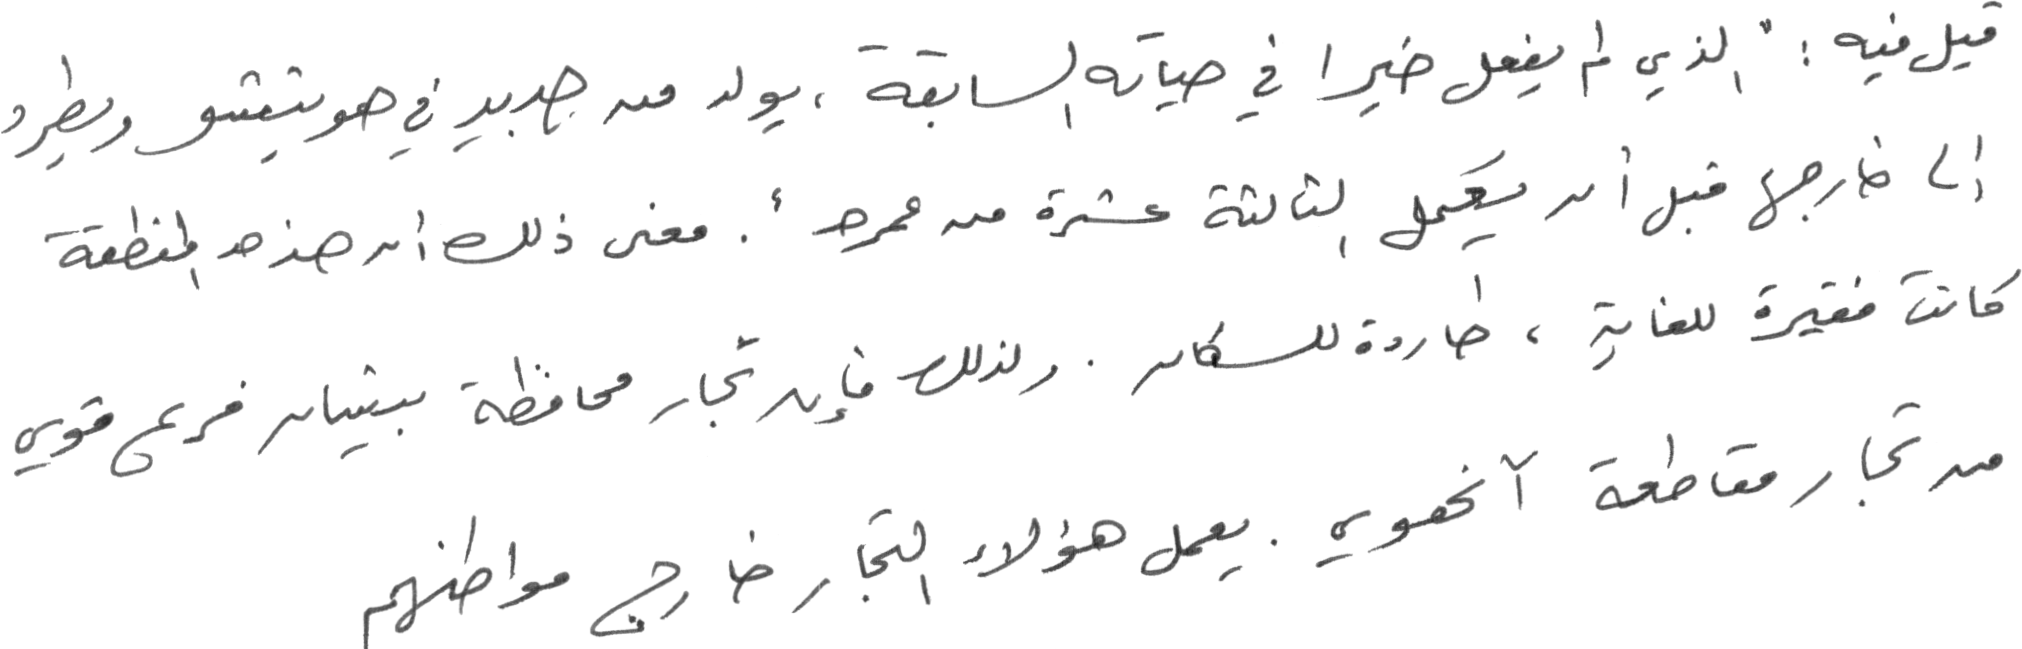 قيل فيه : "الذي لم يفعل خيرا في حياته السابقة ، يولد من جديد في هويتشو ويطرد
إلى خارجها قبل أن يكمل الثالثة عشرة من عمره". معنى ذلك أن هذه المنطقة
كانت فقيرة للغاية ، طاردة للسكان . ولذلك فإن تجار محافظة شيان فرع قوي
من تجار مقاطعة آنخوي . يعمل هؤلاء التجار خارج مواطنهم